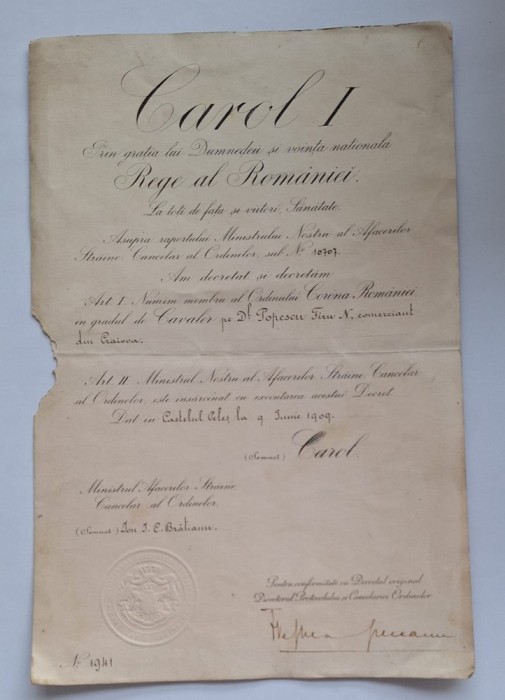 Carol I
Prin gratia lui Dumnedeu și voința națională
Rege al României.
La toți de față și viitori, Sănătate.
Asupra raportului Ministrului Nostru al Afacerilor
Străine, Cancelar al Ordinelor, sub Nº 10707.
Am decretat și decretăm:
Art. I. Numim membru al Ordinului Corona României
in gradul de Cavaler pe Dl Popescu Firu N, comerciant
din Craiova.
Art. II. Ministrul Nostru al Afacerilor Străine, Cancelar
al Ordinelor, este însărcinat cu executarea acestui Decret.
Dat in Castelul Peleș la 9 Iunie 1909.
(Semnat) Carol.
Ministrul Afacerilor Străine
Cancelar al Ordinelor,
(Semnat) Ion I. C. Brătianu.
Pentru conformitate cu Decretul original
Directorul Protocolului si Cancelariei Ordinelor
Nº 1941